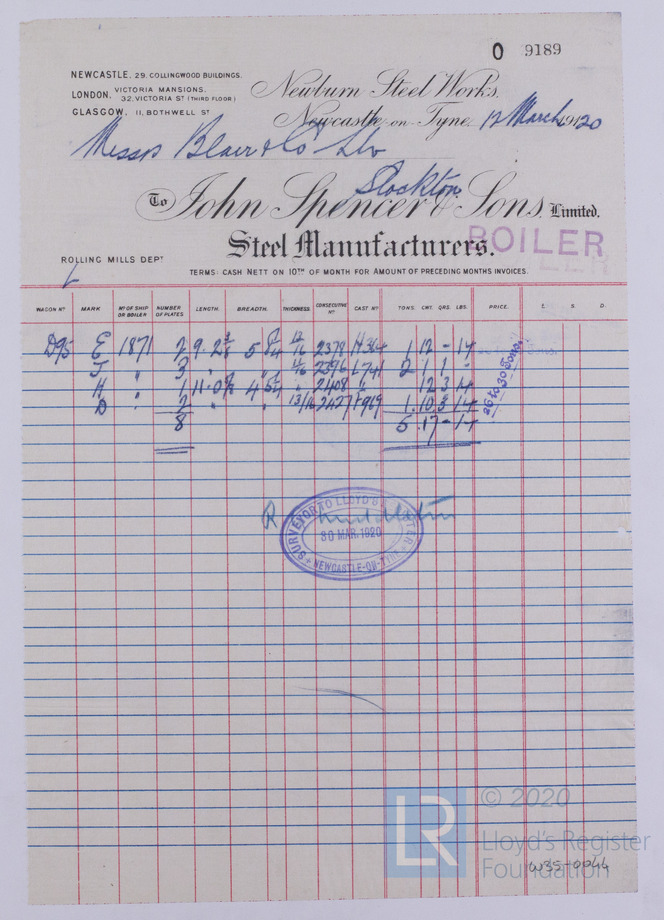 O 9189
NEWCASTLE. 29. COLLINGWOOD BUILDINGS.
LONDON. VICTORIA MANSIONS.
32. VICTORIA ST (THIRD FLOOR)
GLASGOW. 11. BOTHWELL ST
Newburn Steel Works.
Newcastle on Tyne. 12 March 1920
Messrs Blair & Co Ltd
Stockton
To John Spencer & Sons, Limited.
Steel Manufacturers.
BOILER
ROLLING MILLS DEPT
TERMS: CASH NETT ON 10TH OF MONTH FOR AMOUNT OF PRECEDING MONTHS INVOICES.
WAGON No MARK No OF SHIP OR BOILER NUMBER OF PLATES LENGTH. BREADTH. THICKNESS CONSECUTIVE No CAST No TONS. CWT. QRS. LBS. PRICE. £. S. D.
D95 E 1871 2 9. 2 5 2379 1. 12 - 14
" 3 " 2396 L741 2 1 1 -
H " 1 11. 0 4 " 2408 " 12 3 14
D " 2 " " 13/16 2427 1. 10. 3 14
8 5. 17 - 14
26 to 30 Tons.
R
SURVEYOR TO LLOYD'S REGISTER
30 MAR. 1920
NEWCASTLE-ON-TYNE
LR
© 2020
Lloyd's Register
Foundation
W35-0044